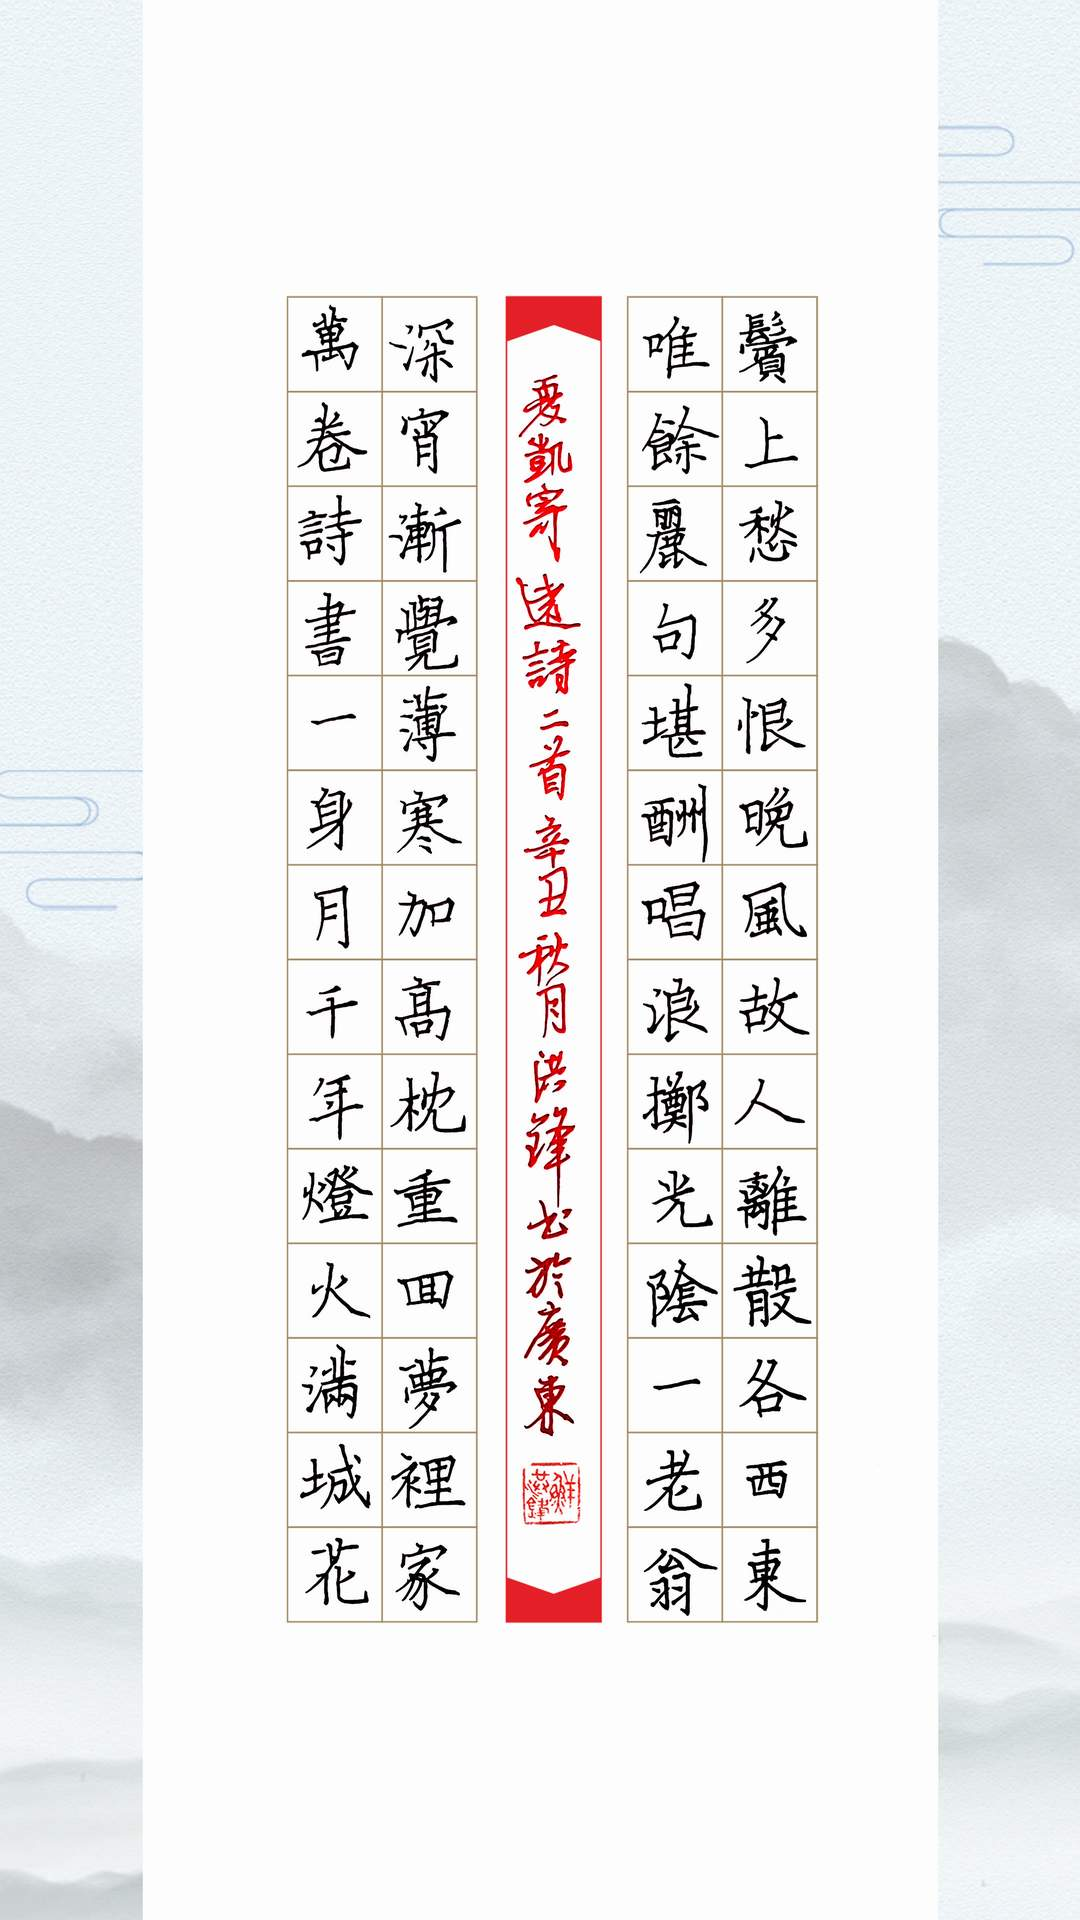 鬢上愁多恨晚風故人離散各西東
唯餘麗句堪酬唱浪擲光陰一老翁
凱寄遠詩二首辛丑秋月洪鋒书於廣東
鮮洪鋒
深宵漸覺薄寒加高枕重回夢裡家
萬卷詩書一身月千年燈火滿城花